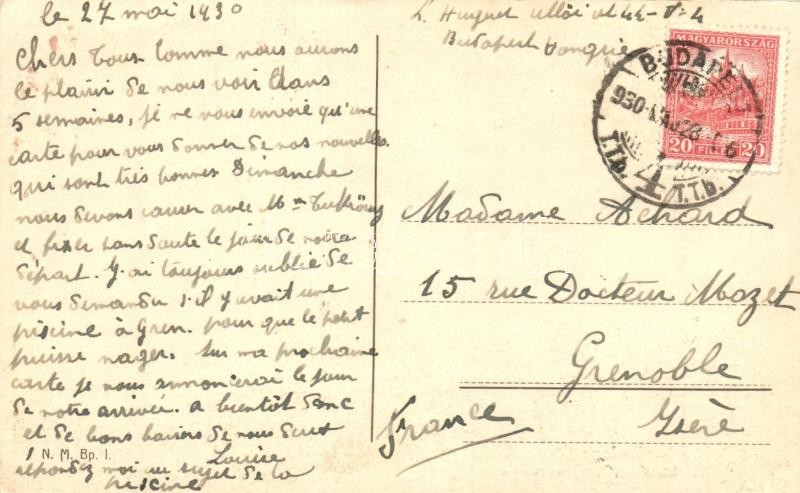 le 27 mai 1930
Chers tous comme nous aurons
le plaisir de nous voir dans
5 semaines, je ne vous envoie qu'une
carte pour vous donner de nos nouvelles
qui sont très bonnes Dimanche
nous devons causer avec M
et fixer sans doute le jour de notre
départ. J'ai toujours oublié de
vous demander s'il y avait une
piscine à Gren. pour que le petit
puisse nager. Sur ma prochaine
carte je vous annoncerai le jour
de notre arrivée. A bientôt donc
et de bons baisers de nous
Louise
répondez moi au sujet de la
piscine
N. M. Bp. I.
L. Huguet ulloi ut 44
Budapest Hongrie
MAGYARORSZÁG
20 FILLÉR 20
BUDAPEST
930
4
T.T.b. T.T.b.
Madame Achard
15 rue Docteur Mazet
Grenoble
Isère
France